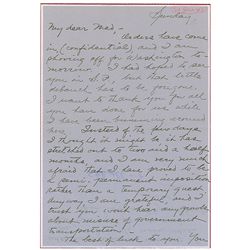 Sunday
My dear Mac, -
Orders have come
in (confidential) and I am
shoving off for Washington to-
morrow. I had hoped to see
you in S.F., but that little
debauch has to be postponed.
I want to thank you for all
you have done for me while
I have been bumming around
here. Instead of the few days
I thought it might be it has
stretched out to two and a half
months, and I am very much
afraid that I have proved to be
a semi-permanent imposition
rather than a temporary guest.
Anyway I am grateful, and I
trust you won't hear any growls
about misuse of government
transportation. -
The best of luck to you. You